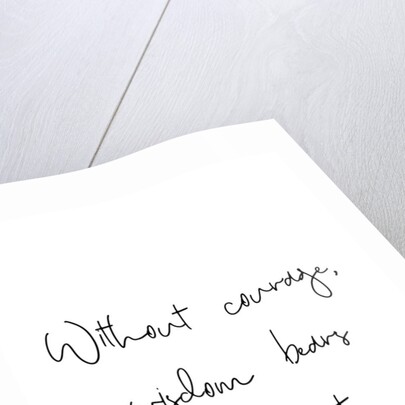 Without courage,
wisdom bears